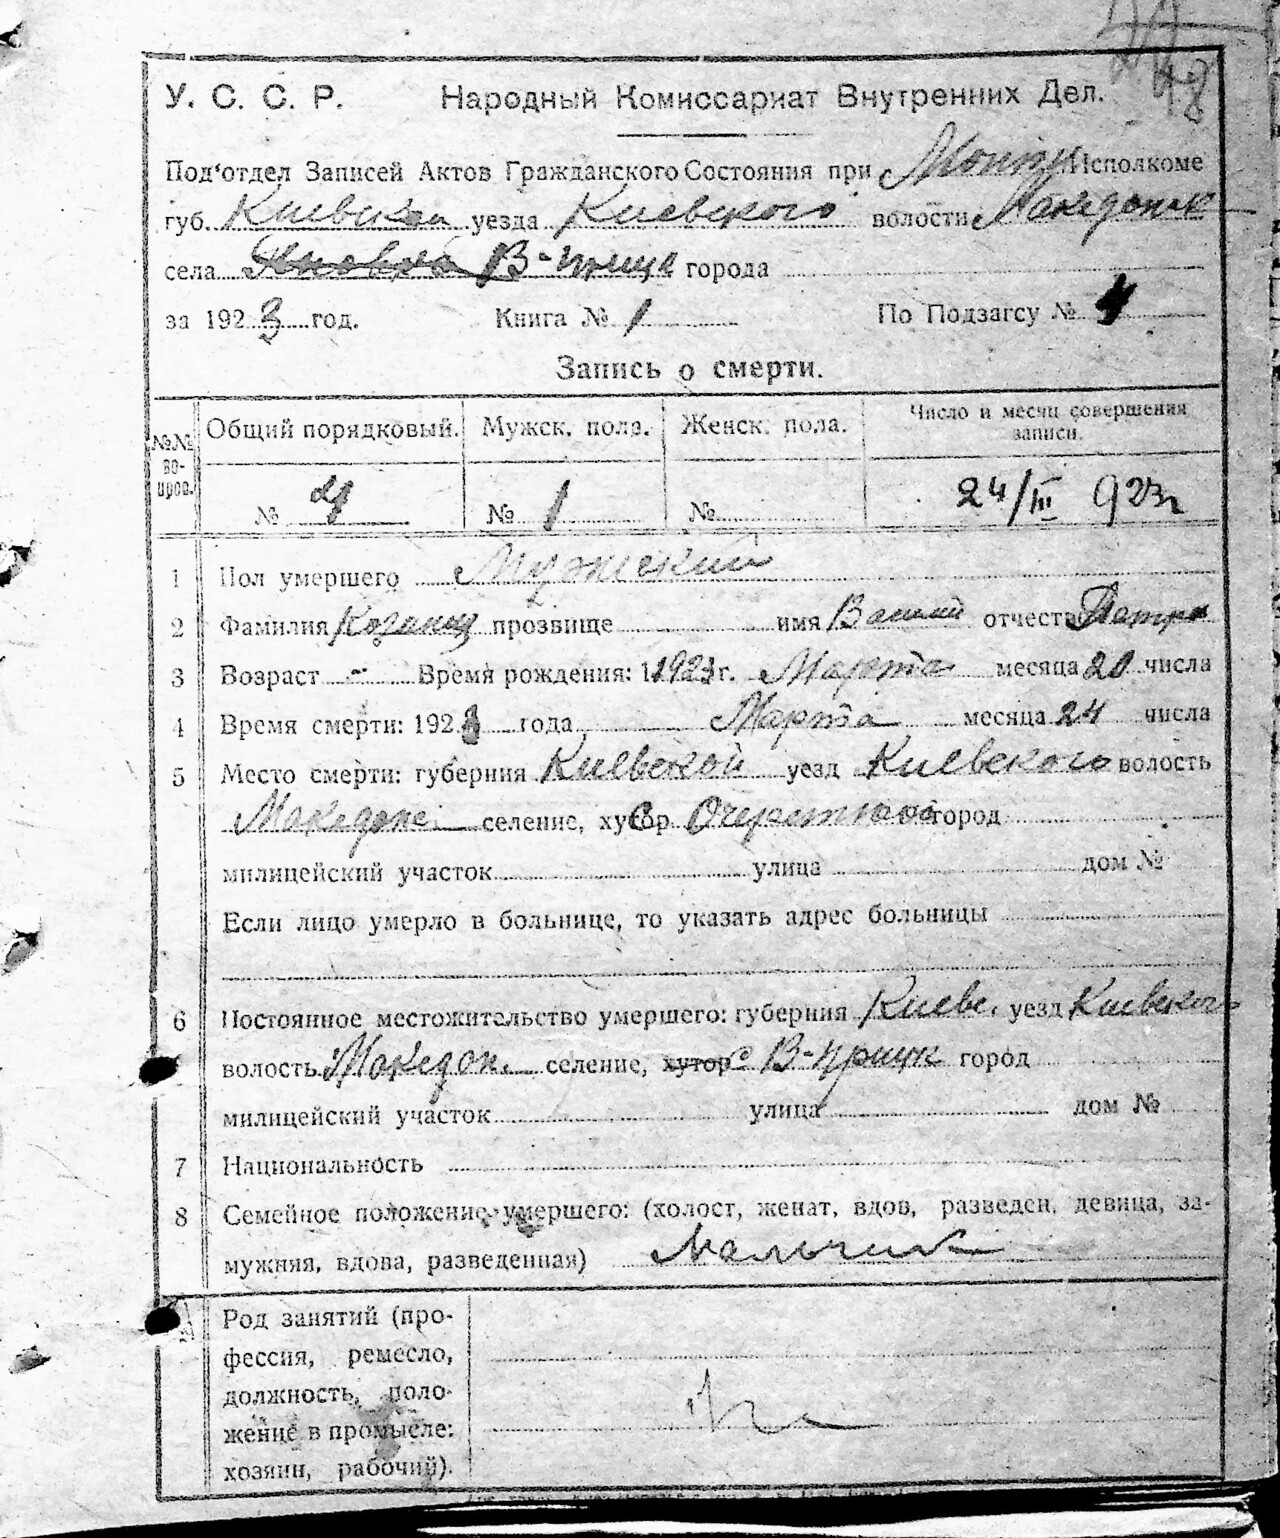 48
У. С. С. Р. Народный Комиссариат Внутренних Дел.
Под'отдел Записей Актов Гражданского Состояния при Исполкоме
губ. Киевской уезда Киевского волости Македонск
села В-Прицк города
за 1923 год. Книга № 1 По Подзагсу № 4
Запись о смерти.
№№ во- прос. Общий порядковый. Мужск. пола. Женск. пола. Число и месяц совершения
записи.
№ 4 № 1 № 24/III 923г
1 Пол умершего Мужской
2 Фамилия прозвище имя Василий отчество Петро
3 Возраст - Время рождения: 1923г. Марта месяца 20 числа
4 Время смерти: 1923 года Марта месяца 24 числа
5 Место смерти: губерния Киевской уезд Киевского волость
Македонс. селение, хутор город
милицейский участок улица дом №
Если лицо умерло в больнице, то указать адрес больницы
6 Постоянное местожительство умершего: губерния Киевс. уезд Киевского
волость Македон. селение, хутор с В-Прицк город
милицейский участок улица дом №
7 Национальность
8 Семейное положение умершего: (холост, женат, вдов, разведен, девица, за-
мужняя, вдова, разведенная) Мальчик
Род занятий (про-
фессия, ремесло,
должность, поло-
жение в промысле:
хозяин, рабочий).